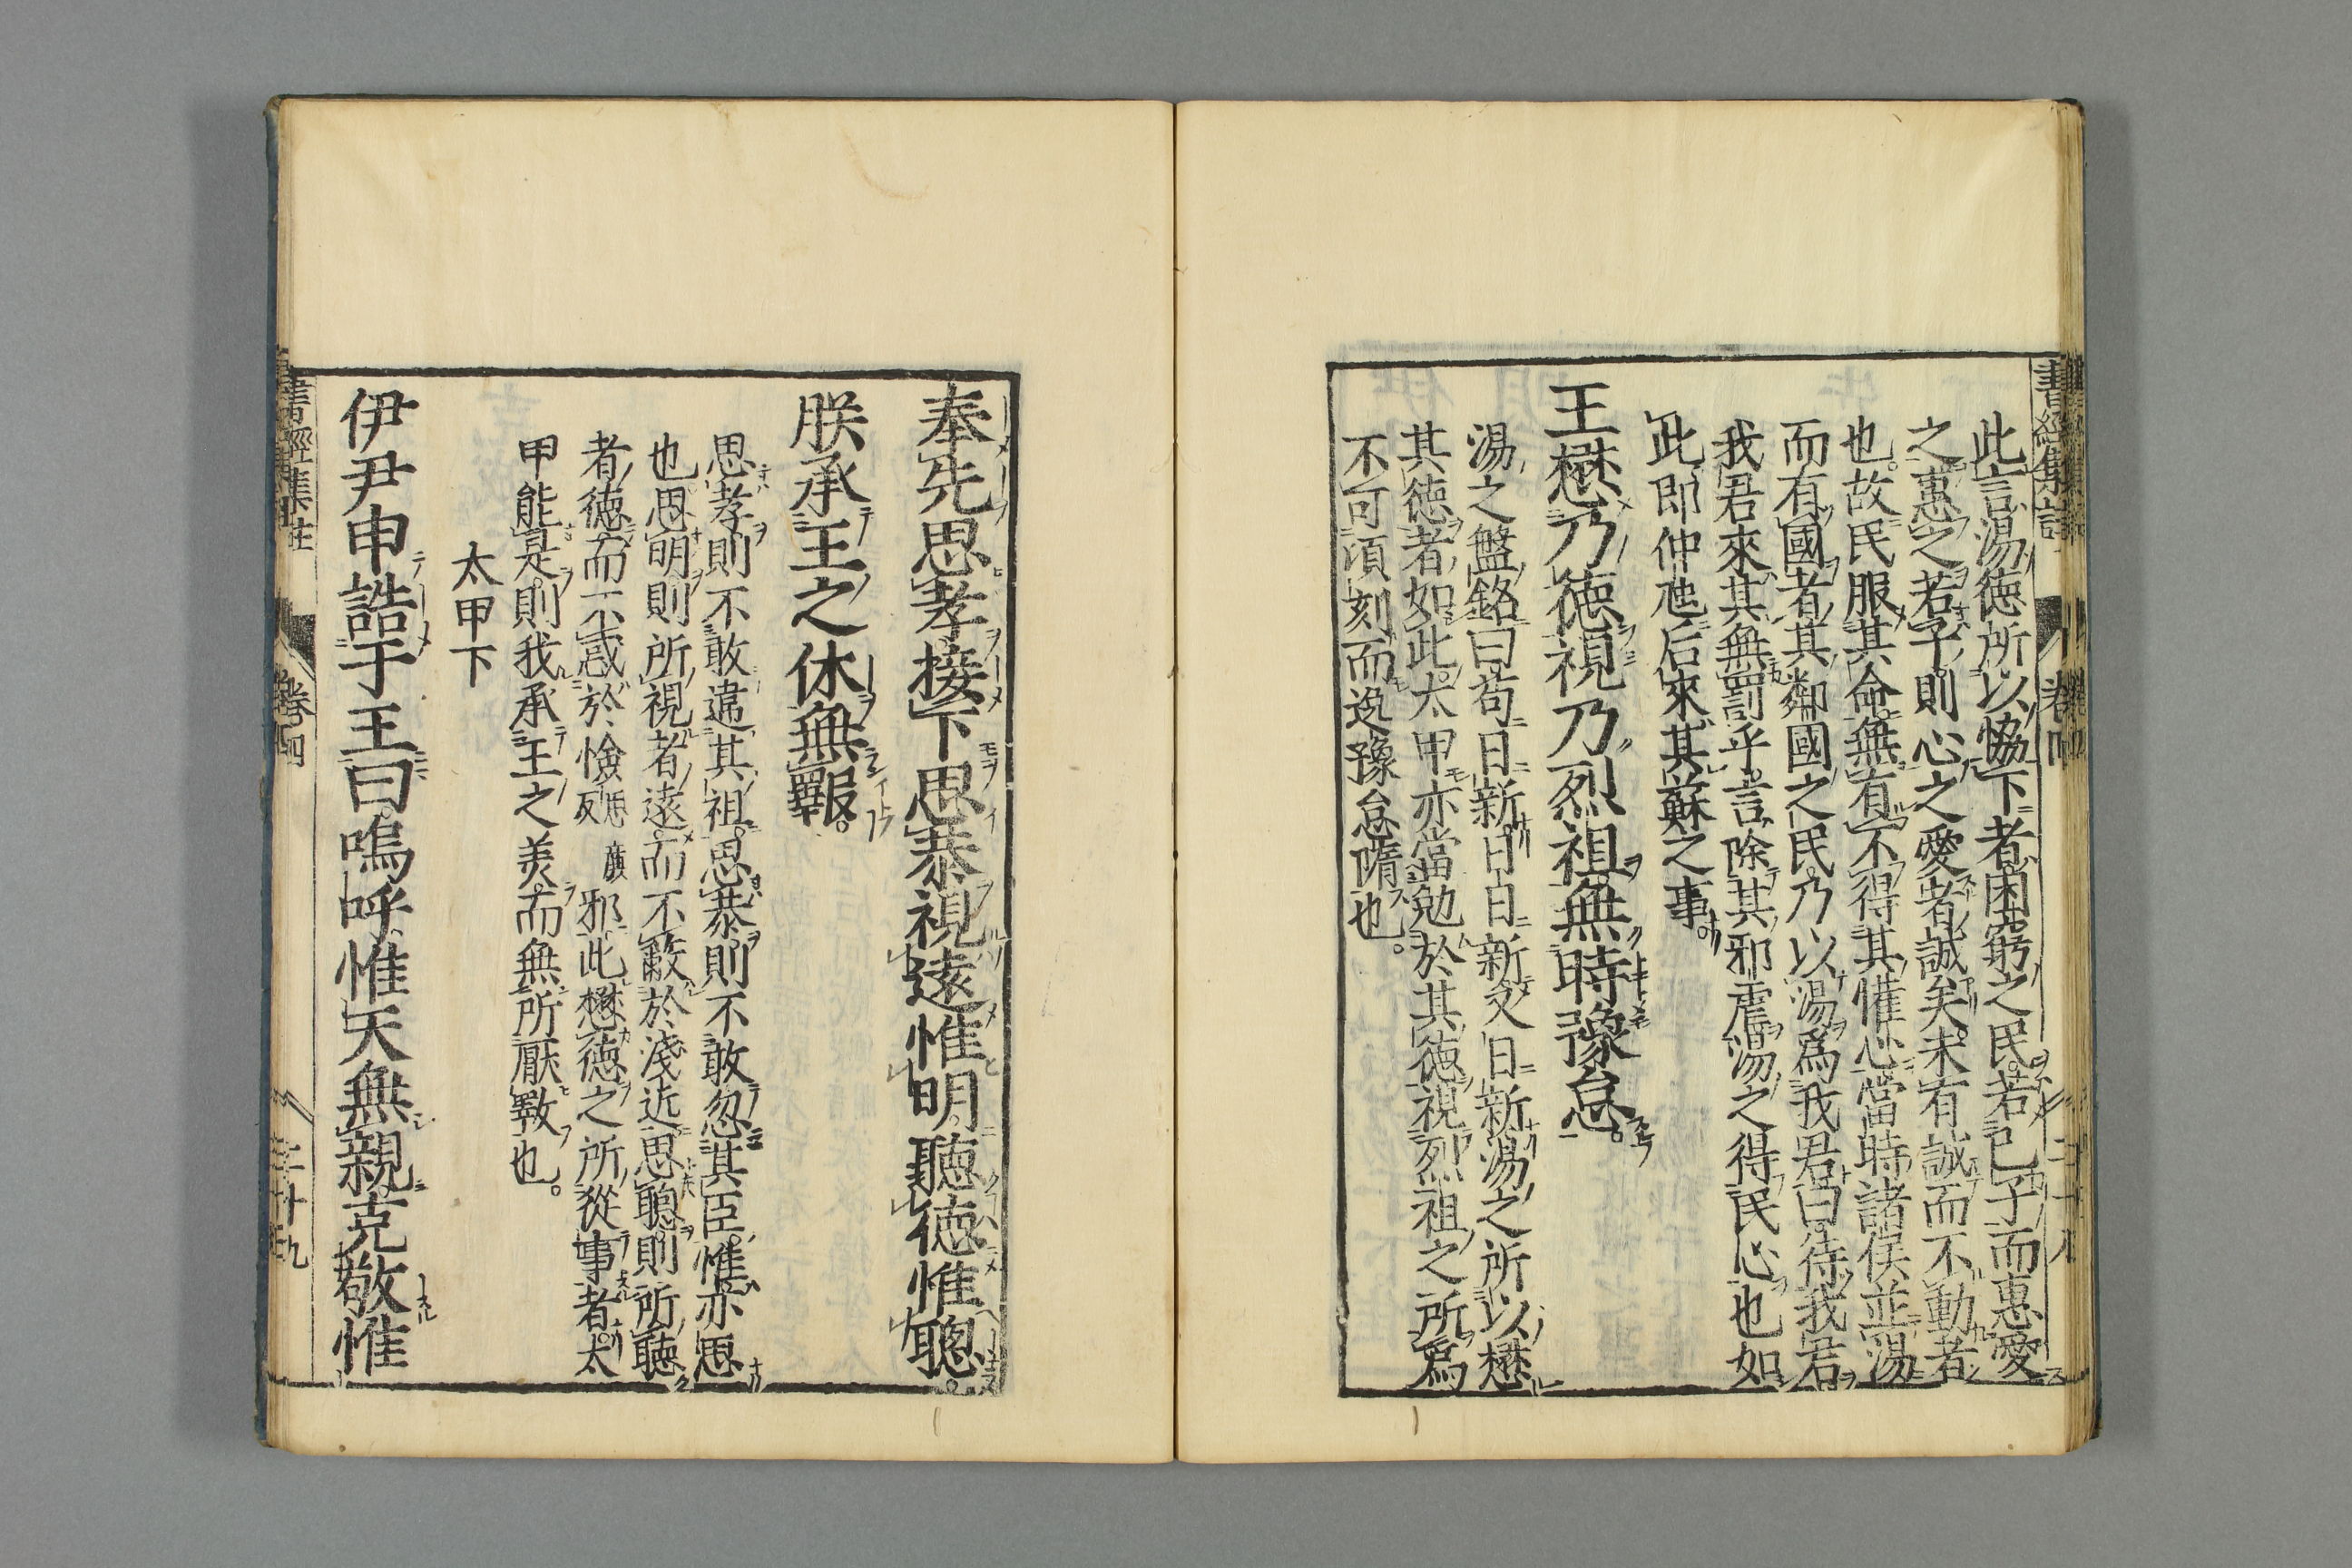 書經集註 卷四 二十八
此言湯德所以恊下者困窮之民若己子而惠愛
之惠之若子則心之愛者誠矣未有誠而不動者
也故民服其命無有不得其懽心當時諸侯並湯
而有國者其鄰國之民乃以湯爲我君曰待我君
我君來其無罰乎言除其邪虐湯之得民心也如
此即仲虺后來其蘇之事
王懋乃德視乃烈祖無時豫怠
湯之盤銘曰苟日新日日新又日新湯之所以懋
其德者如此太甲亦當勉於其德視烈祖之所爲
不可須刻而逸豫怠惰也
奉先思孝接下思恭視遠惟明聽德惟聰
朕承王之休無斁
思孝則不敢違其祖思恭則不敢忽其臣惟亦思
也思明則所視者遠而不蔽於淺近思聰則所聽
者德而不惑於憸邪此懋德之所從事者太
甲能是則我承王之美而無所厭斁也
太甲下
伊尹申誥于王曰嗚呼惟天無親克敬惟
書經集註 卷四 二十九